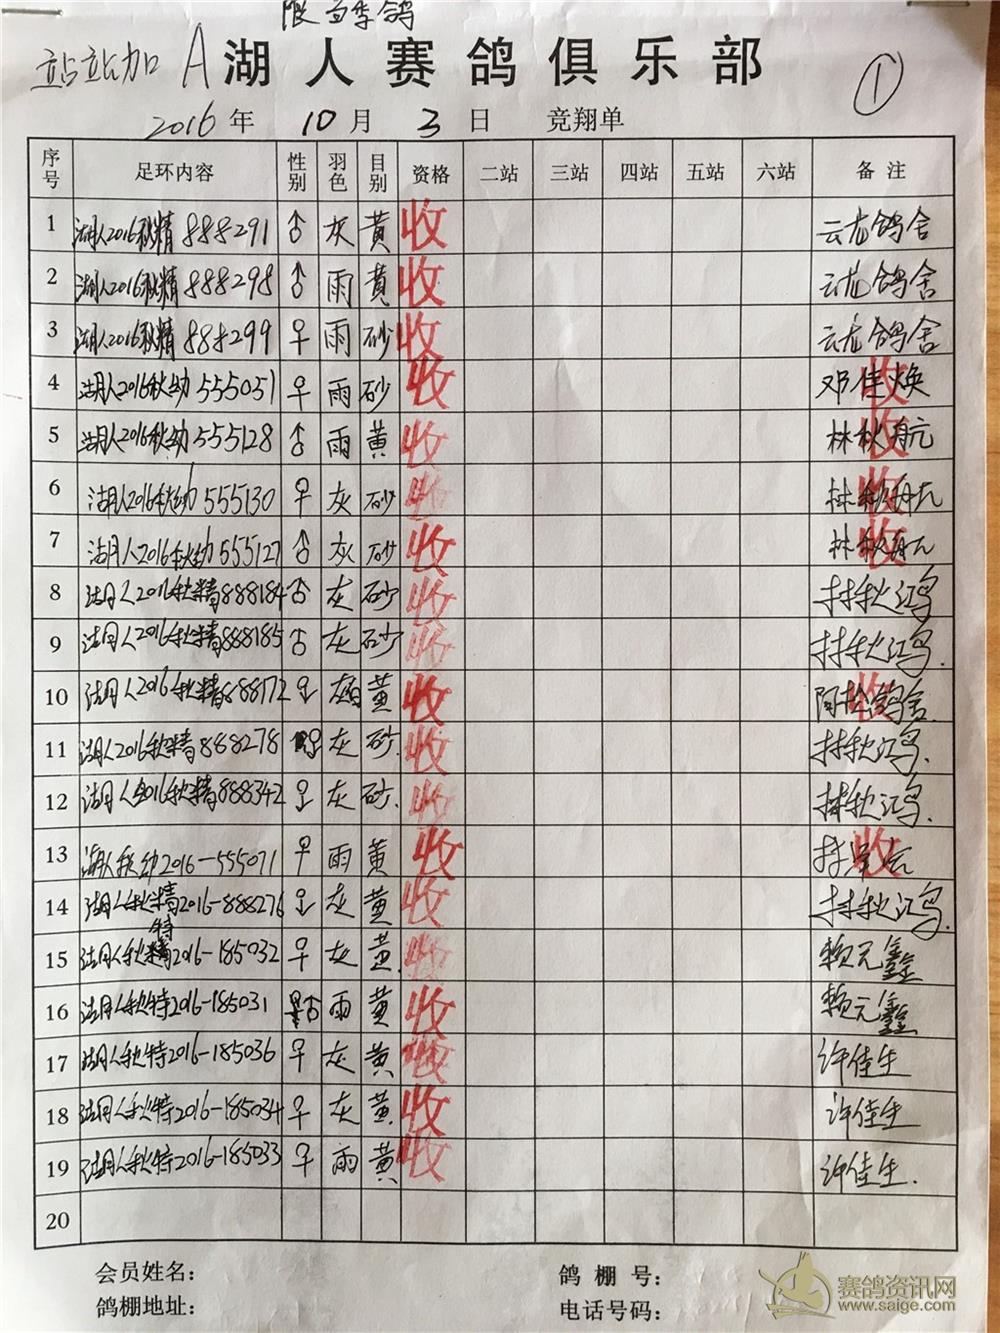 限当季鸽
站站加 A 湖人赛鸽俱乐部 ①
2016年 10月 3日 竞翔单
序号 足环内容 性别 羽色 目别 资格 二站 三站 四站 五站 六站 备注
1 湖人2016秋精 888291 ♂ 灰 黄 收 云龙鸽舍
2 湖人2016秋精 888298 ♂ 雨 黄 收 云龙鸽舍
3 湖人2016秋精 888299 ♀ 雨 砂 收 云龙鸽舍
4 湖人2016秋幼 555051 ♀ 雨 砂 收 邓佳焕 收
5 湖人2016秋幼 555128 ♂ 雨 黄 收 林秋航 收
6 湖人2016秋幼 555130 ♀ 灰 砂 收 林秋航 收
7 湖人2016秋幼 555127 ♂ 灰 砂 收 林秋航 收
8 湖人2016秋精888184 ♂ 灰 砂 收 林秋鸿
9 湖人2016秋精888185 ♂ 灰 砂 收 林秋鸿.
10 湖人2016秋精888172 ♀ 黄 收 阿松鸽舍. 收
11 湖人2016秋精888278 ♀ 灰 砂 收 林秋鸿.
12 湖人2016秋精888342 ♀ 灰 砂. 收 林秋鸿.
13 湖人秋幼2016-555071 ♀ 雨 黄 收 收
14 湖人秋精2016-888276 ♀ 灰 黄 收 林秋鸿.
15 湖人秋特2016-185032 ♀ 灰 黄. 收 赖元鑫
16 湖人秋特2016-185031 ♂ 雨 黄 收 赖元鑫
17 湖人秋特2016-185036 ♀ 灰 黄 收 许佳生
18 湖人秋特2016-185034 ♀ 灰 黄 收 许佳生
19 湖人秋特2016-185033 ♀ 雨 黄 收 许佳生.
20
会员姓名： 鸽棚号：
鸽棚地址： 电话号码：
赛鸽资讯网
www.saige.com